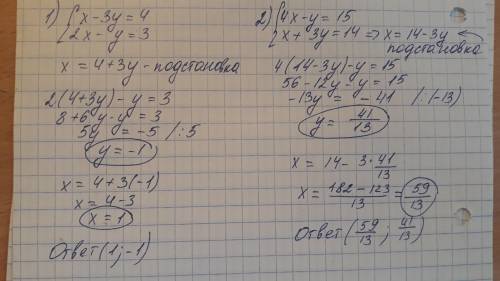 1) { x - 3y = 4
2x - y = 3
x = 4 + 3y - подстановка
2(4 + 3y) - y = 3
8 + 6y - y = 3
5y = -5 /:5
y = -1
x = 4 + 3(-1)
x = 4 - 3
x = 1
Ответ (1; -1)
2) { 4x - y = 15
x + 3y = 14 => x = 14 - 3y
подстановка
4(14 - 3y) - y = 15
56 - 12y - y = 15
-13y = -41 /:(-13)
y = 41/13
x = 14 - 3·41/13
x = (182 - 123)/13 = 59/13
Ответ (59/13; 41/13)